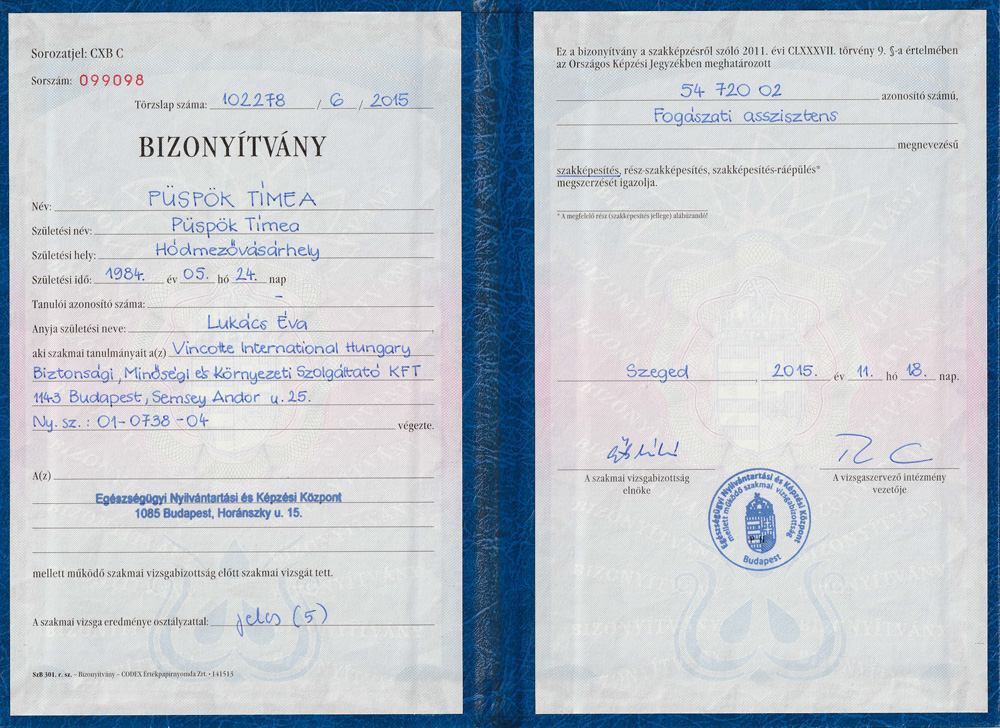 Sorozatjel: CXB C
Sorszám: 099098
Törzslap száma: 102278 / 6 / 2015
BIZONYÍTVÁNY
Név: PÜSPÖK TÍMEA
Születési név: Püspök Tímea
Születési hely: Hódmezővásárhely
Születési idő: 1984. év 05. hó 24. nap
Tanulói azonosító száma: –
Anyja születési neve: Lukács Éva,
aki szakmai tanulmányait a(z) Vincotte International Hungary
Biztonsági, Minőségi és Környezeti Szolgáltató KFT
1143 Budapest, Semsey Andor u. 25.
Ny. sz.: 01-0738-04 végezte.
A(z)
Egészségügyi Nyilvántartási és Képzési Központ
1085 Budapest, Horánszky u. 15.
mellett működő szakmai vizsgabizottság előtt szakmai vizsgát tett.
A szakmai vizsga eredménye osztályzattal: jeles (5)
SzB 301. r. sz. – Bizonyítvány – CODEX Értékpapírnyomda Zrt. • 141513
Ez a bizonyítvány a szakképzésről szóló 2011. évi CLXXXVII. törvény 9. §-a értelmében
az Országos Képzési Jegyzékben meghatározott
54 720 02 azonosító számú,
Fogászati asszisztens
megnevezésű
szakképesítés, rész-szakképesítés, szakképesítés-ráépülés*
megszerzését igazolja.
* A megfelelő rész (szakképesítés jellege) aláhúzandó!
Szeged, 2015. év 11. hó 18. nap.
A szakmai vizsgabizottság
elnöke
A vizsgaszervező intézmény
vezetője
Egészségügyi Nyilvántartási és Képzési Központ
mellett működő szakmai vizsgabizottság
Budapest